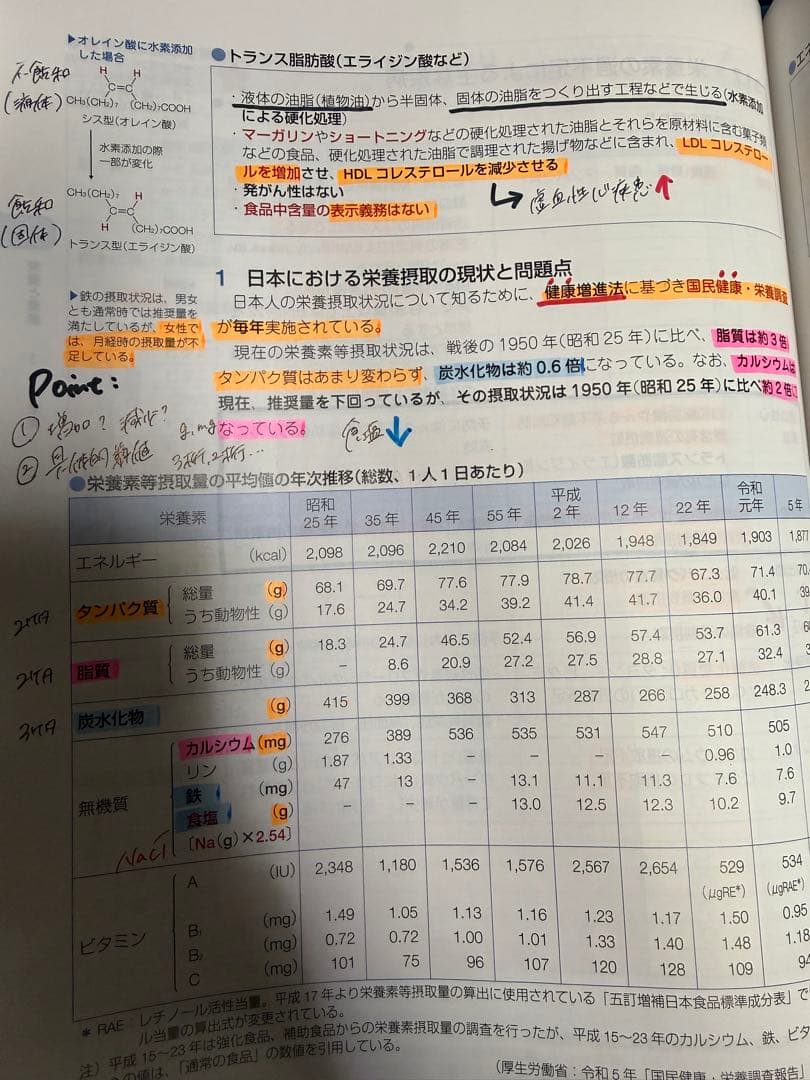 ▶オレイン酸に水素添加
した場合
不飽和
(液体)
H H
C=C
CH₃(CH₂)₇ (CH₂)₇COOH
シス型(オレイン酸)
水素添加の際
一部が変化
飽和
(固体)
CH₃(CH₂)₇ H
C=C
H (CH₂)₇COOH
トランス型(エライジン酸)
●トランス脂肪酸(エライジン酸など)
・液体の油脂(植物油)から半固体、固体の油脂をつくり出す工程などで生じる(水素添加
による硬化処理)
・マーガリンやショートニングなどの硬化処理された油脂とそれらを原材料に含む菓子類
などの食品、硬化処理された油脂で調理された揚げ物などに含まれ、LDLコレステロー
ルを増加させ、HDLコレステロールを減少させる
・発がん性はない
・食品中含量の表示義務はない
↳虚血性心疾患↑
1 日本における栄養摂取の現状と問題点
日本人の栄養摂取状況について知るために、健康増進法に基づき国民健康・栄養調査
が毎年実施されている。
現在の栄養素等摂取状況は、戦後の1950年(昭和25年)に比べ、脂質は約3倍
タンパク質はあまり変わらず、炭水化物は約0.6倍になっている。なお、カルシウムは
現在、推奨量を下回っているが、その摂取状況は1950年(昭和25年)に比べ約2倍に
なっている。
食塩↓
▶鉄の摂取状況は、男女
とも通常時では推奨量を
満たしているが、女性で
は、月経時の摂取量が不
足している。
Point:
① 増加? 減少?
② 具体的数値 g, mg
3桁, 2桁…
●栄養素等摂取量の平均値の年次推移(総数、1人1日あたり)
栄養素 昭和25年 35年 45年 55年 平成2年 12年 22年 令和元年 5年
エネルギー (kcal) 2,098 2,096 2,210 2,084 2,026 1,948 1,849 1,903 1,877
2ケタ タンパク質 総量 (g) 68.1 69.7 77.6 77.9 78.7 77.7 67.3 71.4 70.
うち動物性 (g) 17.6 24.7 34.2 39.2 41.4 41.7 36.0 40.1 39
2ケタ 脂質 総量 (g) 18.3 24.7 46.5 52.4 56.9 57.4 53.7 61.3
うち動物性 (g) – 8.6 20.9 27.2 27.5 28.8 27.1 32.4
3ケタ 炭水化物 (g) 415 399 368 313 287 266 258 248.3 2
無機質 カルシウム (mg) 276 389 536 535 531 547 510 505
リン (g) 1.87 1.33 – – – – 0.96 1.0
鉄 (mg) 47 13 – 13.1 11.1 11.3 7.6 7.6
食塩 (g) – – – 13.0 12.5 12.3 10.2 9.7
NaCl 〔Na(g)×2.54〕
ビタミン A (IU) 2,348 1,180 1,536 1,576 2,567 2,654 529 534
(μgRE*) (μgRAE*)
B₁ (mg) 1.49 1.05 1.13 1.16 1.23 1.17 1.50 0.95
B₂ (mg) 0.72 0.72 1.00 1.01 1.33 1.40 1.48 1.18
C (mg) 101 75 96 107 120 128 109 94
* RAE:レチノール活性当量。平成17年より栄養素等摂取量の算出に使用されている「五訂増補日本食品標準成分表」で
ル当量の算出式が変更されている。
注)平成15~23年は強化食品、補助食品からの栄養素摂取量の調査を行ったが、平成15~23年のカルシウム、鉄、ビタ
の値は、「通常の食品」の数値を引用している。
(厚生労働省:令和5年「国民健康・栄養調査報告」